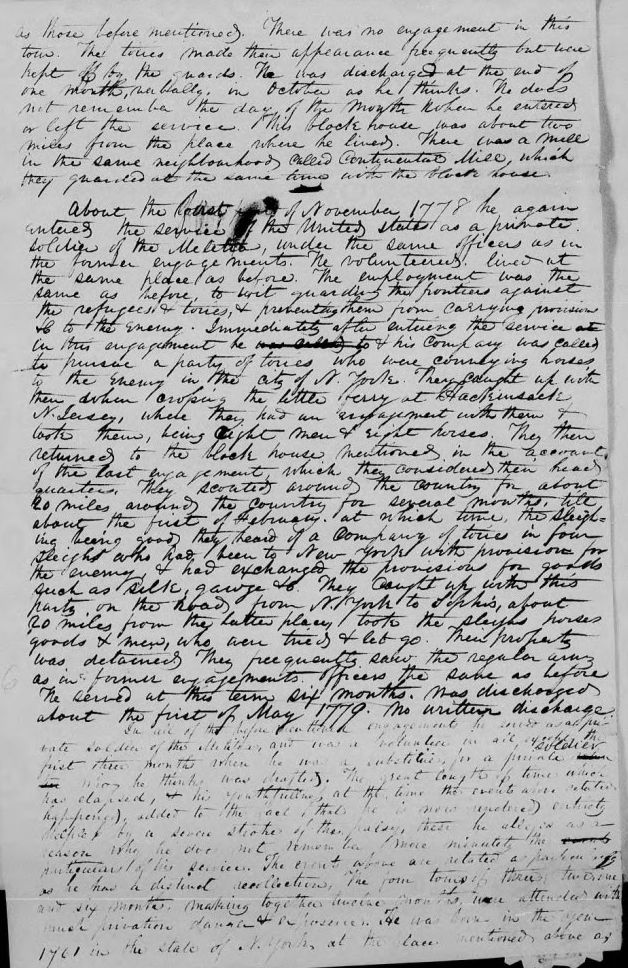 as those before mentioned. There was no engagement in this
tour. The tories made their appearance frequently but were
kept off by the guards. He was discharged at the end of
one month, verbally, in October as he thinks. He does
not remember the day of the month when he entered
or left the service. This block house was about two
miles from the place where he lived. There was a mill
in the same neighbourhood called Continental Mill, which
they guarded at the same time with the block house.
About the first of November 1778 he again
entered the service of the United states as a private
soldier of the Melitia, under the same officers as in
the former engagements. He volunteered. lived at
the same place as before. The employment was the
same as before, to wit guarding the frontiers against
the refugees & tories, & preventing them from carrying provision
&c to the Enemy. Immediately after entering the service
in this engagement he was called to & his company was called
to pursue a party of tories who were conveying horses
to the Enemy in the city of N. York. They caught up with
them when crossing the little ferry at Hackinsack
N. Jersey, where they had an engagement with them &
took them, being eight men & eight horses. They then
returned to the block house mentioned in the account
of the last engagement, which they considered their head
quarters. They scouted around the country for about
20 miles around the country for several months, till
about the first of February. at which time, the sleigh-
ing being good, they heard of a company of tories in four
sleighs who had been to New York with provision for
the enemy, & had exchanged the provisions for goods
such as silk, gauze &c. They caught up with this
party on the road, from N York to Sophis, about
20 miles from the latter place, took the sleighs horses
goods & men, who were tried & let go. Their property
was detained. They frequently saw the regular army
as in former engagements. Officers the same as before
He served at this term six months. Was discharged
about the first of May 1779. No written discharge
In all of the before mentioned engagement he served as a pri-
vate soldier of the Militia, and was a volunteer in all except the
first three months when he was a substitute for a private soldier
who he thinks was drafted. The great length of time which
has elapsed, & his youthfulness, at the time the events above related
happened, added to the fact that he is now rendered entirely
by a severe stroke of the palsey, these he alleges as a
reason why he does not remember more minutely the events
particulars of his service. The events above are related as
as he has a distinct recollection. The four tours of three, two, one
and six months, making together twelve months, were attended with
much privation danger & exposure. He was born in the year
1761 in the state of N. York, at the place mentioned above as